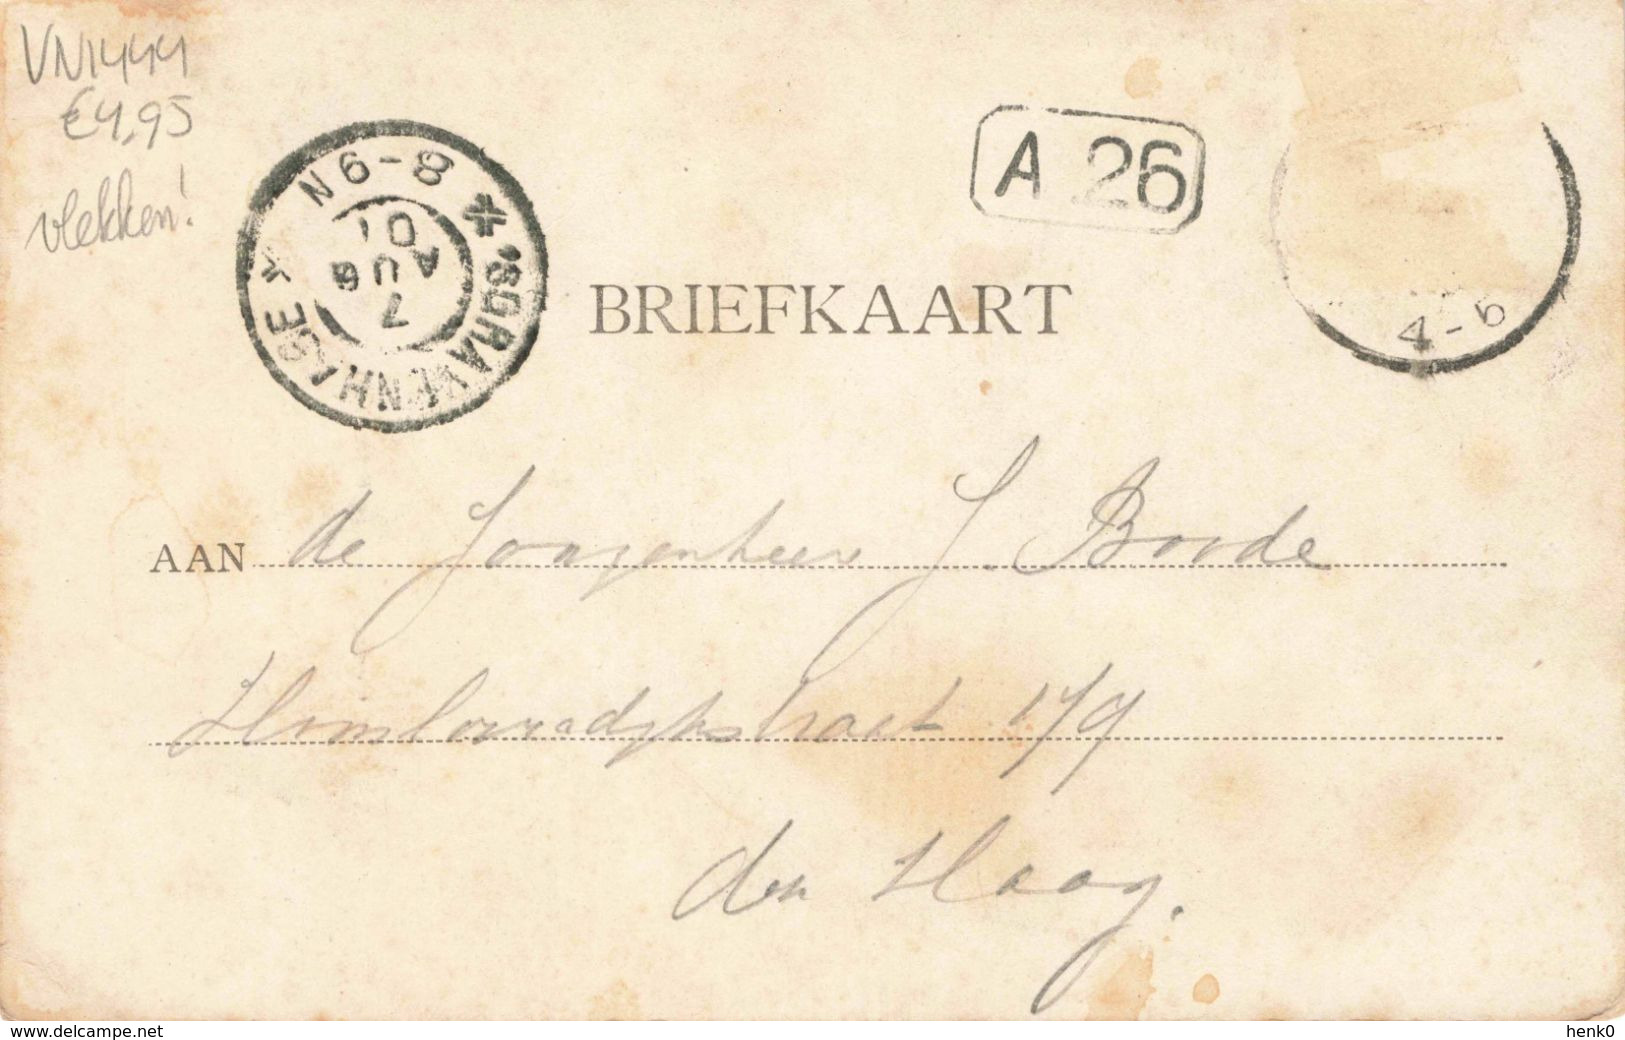 VN1444
€4,95
vlekken!
N 6-8
'SGRAVENHAGE
7
AUG
01
A 26
4-5
BRIEFKAART
AAN de Jongenheer J. Boode
179
den Haag.
www.delcampe.net
henk0